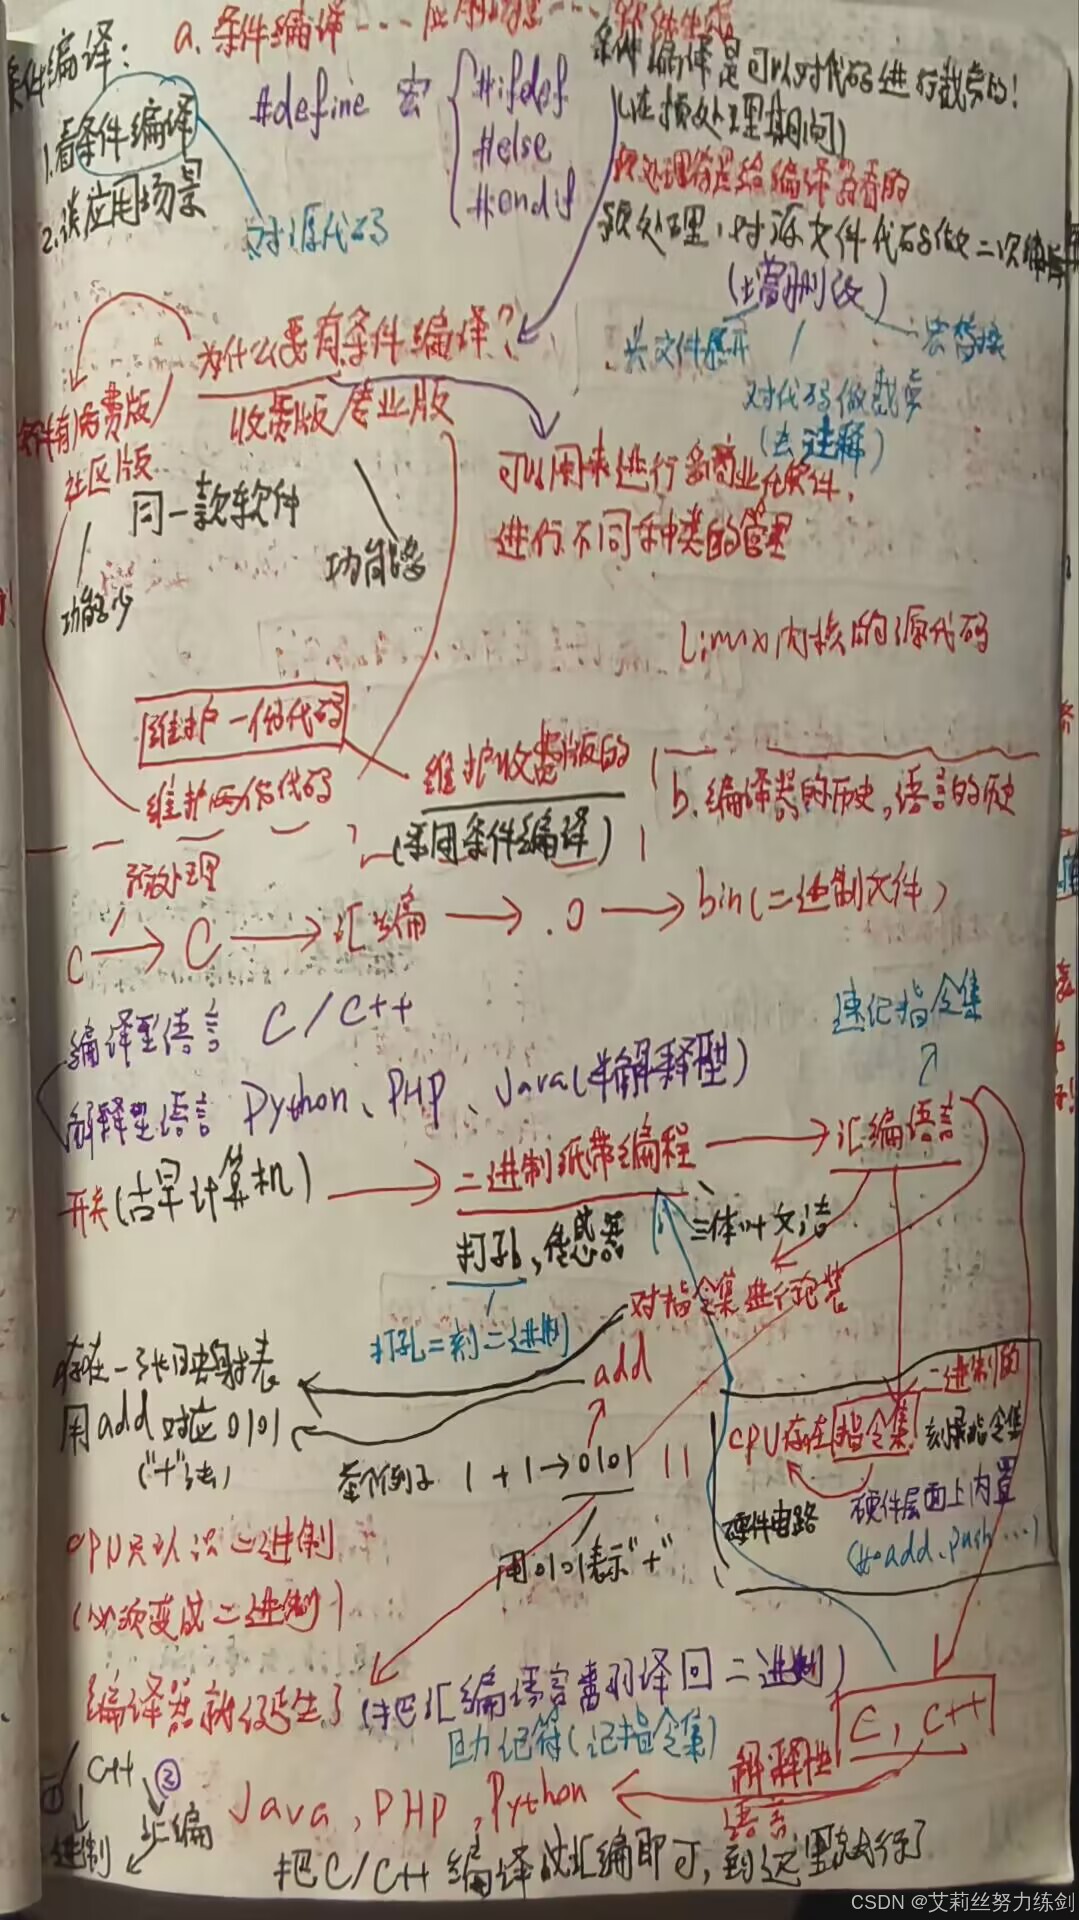 a. 条件编译
条件编译:
#define 宏
#ifdef
#else
#endif
条件编译是可以对代码进行裁剪的!
(在预处理期间)
1.看条件编译
2.谈应用场景
对源代码
预处理符是给编译器看的
预处理,对源文件代码做二次编辑
(增删改)
头文件展开
宏替换
对代码做裁剪
(去注释)
为什么要有条件编译?
软件有免费版/
社区版
收费版/专业版
同一款软件
功能少
功能多
可以用来进行商业化软件,
进行不同种类的管理
Linux内核的源代码
维护一份代码
维护两份代码
维护收费版的
(采用条件编译)
b. 编译器的历史,语言的历史
预处理
C → C → 汇编 → .o → bin(二进制文件)
编译型语言 C/C++
解释型语言 Python、PHP、Java(半解释型)
速记指令集
开关(古早计算机) → 二进制纸带编程 → 汇编语言
打孔,传感器
三体叶文洁
打孔=刻二进制
对指令集进行包装
存在一张映射表
用add对应0101
("+"法)
add
举个例子 1+1→0101 11
用0101表示"+"
CPU存在指令集
二进制的
刻录指令集
硬件电路
硬件层面上内置
(如add、push…)
CPU只认识二进制
(必须变成二进制)
编译器就诞生了(把汇编语言翻译回二进制)
助记符(记指令集)
C, C++
解释性
语言
Java, PHP, Python
① C++ ②
二进制
汇编
把C/C++编译成汇编即可,到这里就行了
CSDN @艾莉丝努力练剑